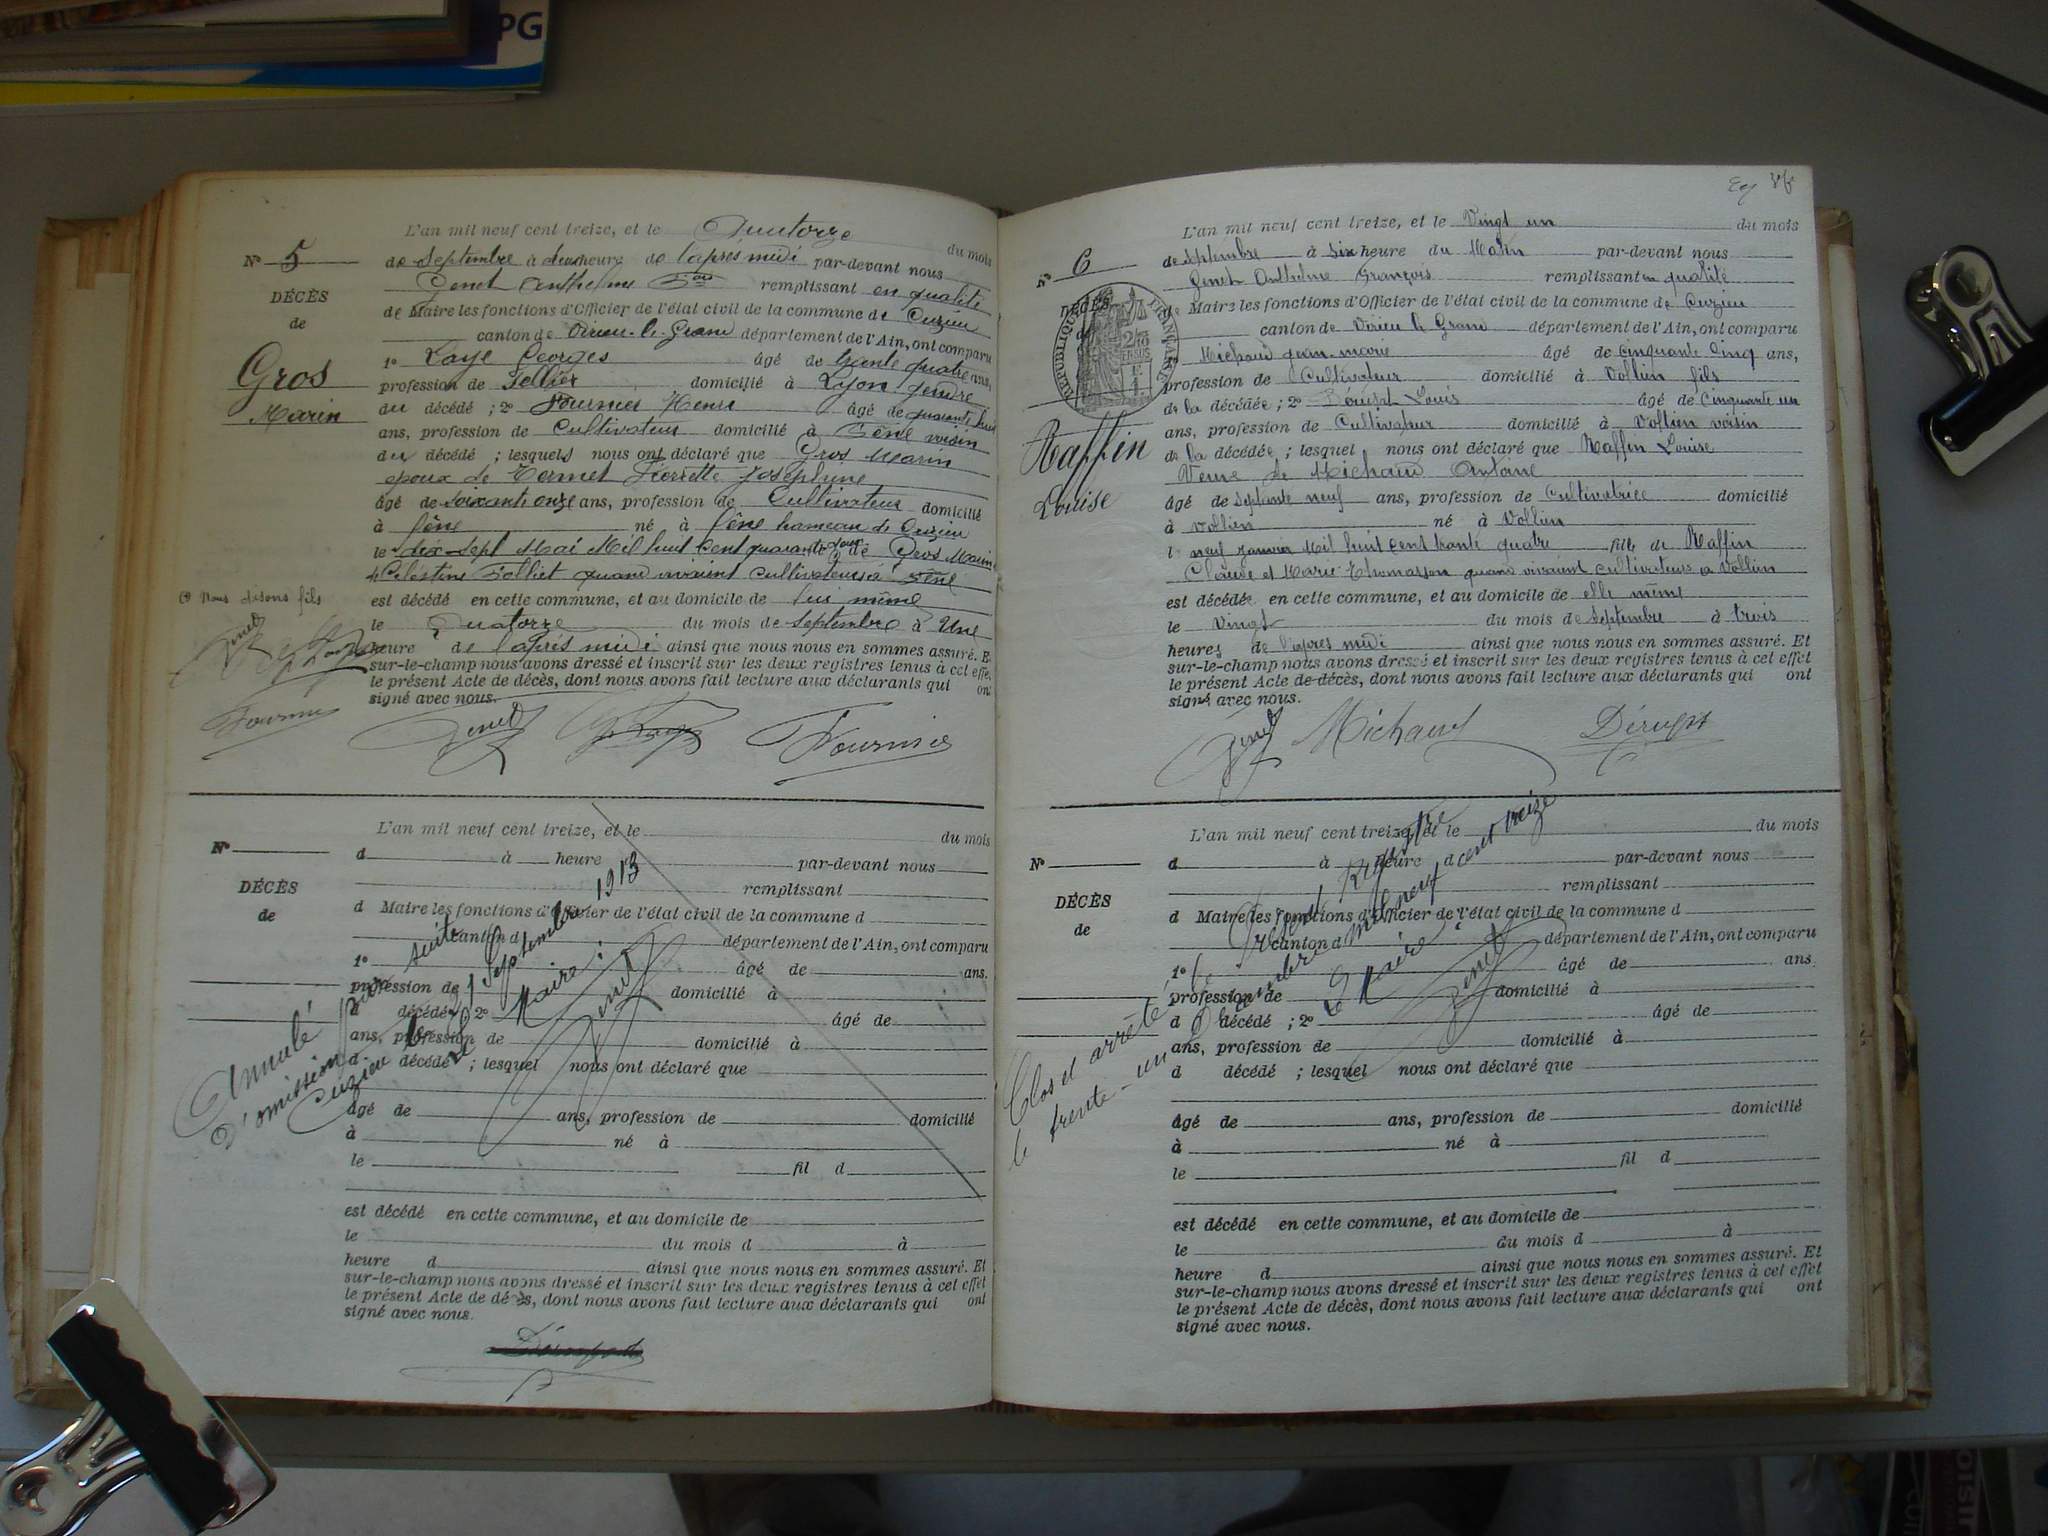 PG
L'an mil neuf cent treize, et le Quatorze du mois
N° 5
de Septembre à deux heure de l'après midi par-devant nous
Genet Anthelme remplissant en qualité
DÉCÈS
de Maire les fonctions d'Officier de l'état civil de la commune de Cuzieu
de
canton de Virieu-le-Grand département de l'Ain, ont comparu
1° Laye Georges âgé de trente quatre ans,
Gros
profession de Sellier domicilié à Lyon gendre
Marin
du décédé ; 2° Fournier Henri âgé de quarante huit
ans, profession de Cultivateur domicilié à voisin
du décédé ; lesquels nous ont déclaré que Gros Marin
époux de Pierrette Joséphine
âgé de soixante onze ans, profession de Cultivateur domicilié
à né à hameau de Cuzieu
le dix-sept Mai Mil huit cent quarante deux de Gros Marin
Célestine quand vivaient cultivateurs à
Nous disons fils
est décédé en cette commune, et au domicile de lui même
le Quatorze du mois de Septembre à Une
Genet
heure de l'après midi ainsi que nous nous en sommes assuré. Et
sur-le-champ nous avons dressé et inscrit sur les deux registres tenus à cet effet
le présent Acte de décès, dont nous avons fait lecture aux déclarants qui ont
signé avec nous.
Fournier
Genet Fournier
L'an mil neuf cent treize, et le du mois
N°
d à heure par-devant nous
remplissant
DÉCÈS
de
d Maire les fonctions d'Officier de l'état civil de la commune d
canton d département de l'Ain, ont comparu
1° âgé de ans.
profession de domicilié à
d décédé ; 2° âgé de
ans, profession de domicilié à
d décédé ; lesquel nous ont déclaré que
âgé de ans, profession de domicilié
à né à
le fil d
est décédé en cette commune, et au domicile de
le du mois d à
heure d ainsi que nous nous en sommes assuré. Et
sur-le-champ nous avons dressé et inscrit sur les deux registres tenus à cet effet
le présent Acte de décès, dont nous avons fait lecture aux déclarants qui ont
signé avec nous.
Annulé par suite
d'omission
Cuzieu le 21 Septembre 1913
Le Maire :
Genet
L'an mil neuf cent treize, et le Vingt un du mois
N° 6
de Septembre à six heure du Matin par-devant nous
Genet Anthelme François remplissant en qualité
DÉCÈS
de
RÉPUBLIQUE FRANÇAISE
2/10 EN SUS
de Maire les fonctions d'Officier de l'état civil de la commune de Cuzieu
canton de Virieu le Grand département de l'Ain, ont comparu
Michaud Jean-Marie âgé de cinquante cinq ans,
profession de Cultivateur domicilié à Vollien fils
de la décédée ; 2° Dérupt Louis âgé de Cinquante un
ans, profession de Cultivateur domicilié à Vollien voisin
Raffin
Louise
de la décédée ; lesquel nous ont déclaré que Raffin Louise
Veuve de Michaud Antoine
âgé de septante neuf ans, profession de Cultivatrice domicilié
à Vollien né à Vollien
le neuf janvier Mil huit cent trente quatre fille de Raffin
Claude et Marie Thomasson quand vivaient cultivateurs à Vollien
est décédée en cette commune, et au domicile de elle même
le Vingt du mois de Septembre à trois
heures de l'après midi ainsi que nous nous en sommes assuré. Et
sur-le-champ nous avons dressé et inscrit sur les deux registres tenus à cet effet
le présent Acte de décès, dont nous avons fait lecture aux déclarants qui ont
signé avec nous.
Genet Michaud Dérupt
L'an mil neuf cent treize, et le du mois
N°
d à heure d par-devant nous
remplissant
DÉCÈS
de
d Maire les fonctions d'Officier de l'état civil de la commune d
canton d département de l'Ain, ont comparu
1° âgé de ans.
profession de domicilié à
d décédé ; 2° âgé de
ans, profession de domicilié à
d décédé ; lesquel nous ont déclaré que
âgé de ans, profession de domicilié
à né à
le fil d
est décédé en cette commune, et au domicile de
le du mois d à
heure d ainsi que nous nous en sommes assuré. Et
sur-le-champ nous avons dressé et inscrit sur les deux registres tenus à cet effet
le présent Acte de décès, dont nous avons fait lecture aux déclarants qui ont
signé avec nous.
Clos et arrêté le Présent Registre
le trente-un Décembre mil neuf cent treize
Le Maire :
Genet